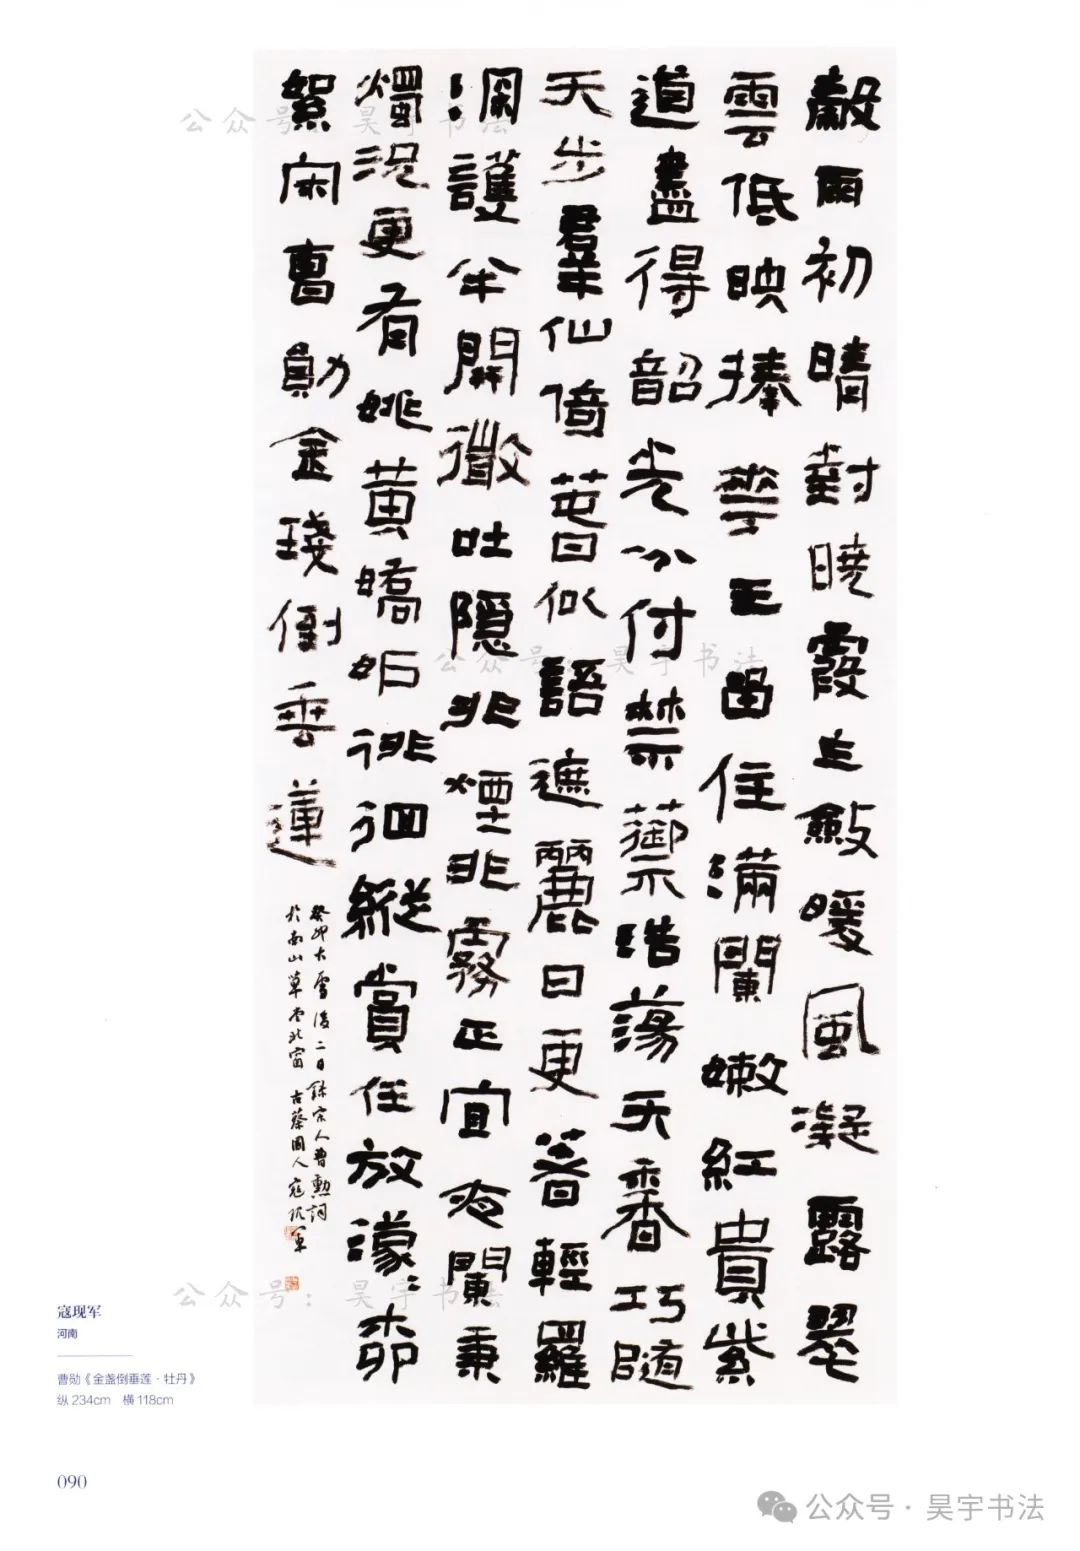 穀雨初晴對曉霞乍斂暖風凝露翠
雲低映捧花王留住滿闌嫩紅貴紫
道盡得韶光分付禁蘌浩蕩天香巧隨
天步羣仙倚春似語遮麗日更著輕羅
深〻護半開微吐隱非煙非霧正宜夜闌秉
燭況更有姚黃嬌妒徘徊縱賞任放濛〻柳
絮宋曹勛金琖倒垂蓮
癸卯大雪後二日録宋人曹勲詞
於南山草堂北窗古蔡國人寇現軍
公众号：昊宇书法
公众号：昊宇书法
公众号：昊宇书法
寇现军
河南
曹勋《金盏倒垂莲·牡丹》
纵234cm 横118cm
090
公众号·昊宇书法